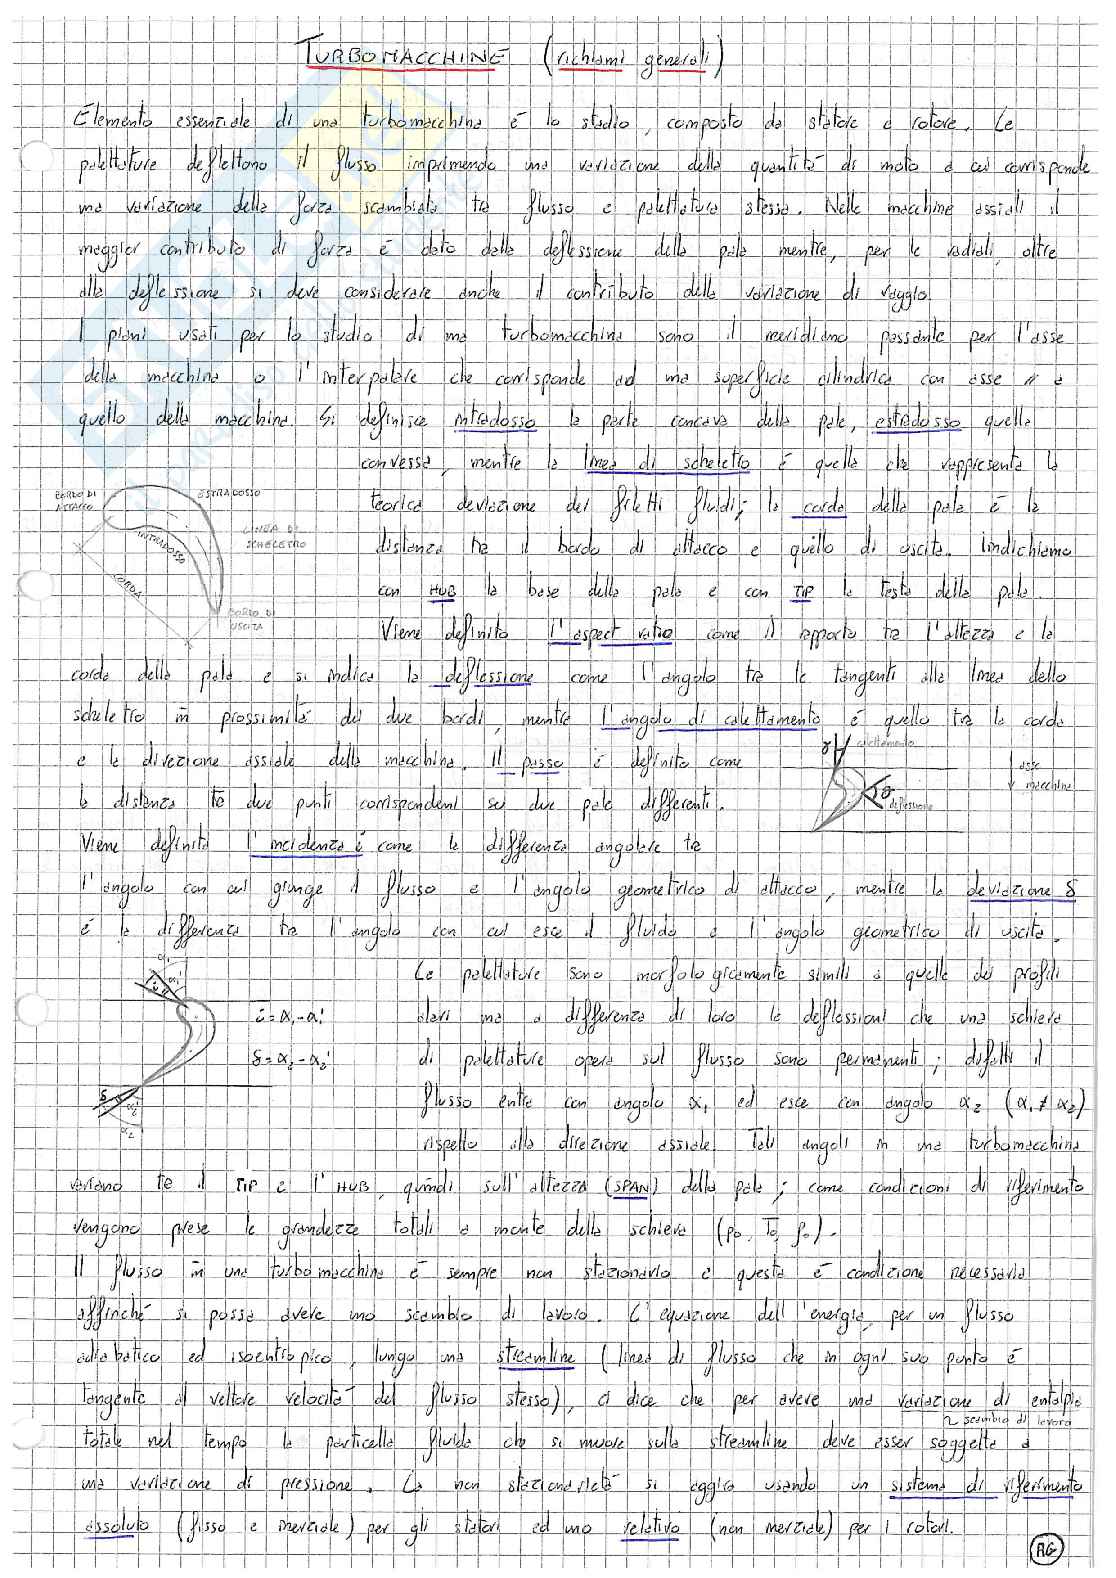 TURBOMACCHINE (richiami generali)
Elemento essenziale di una turbomacchina è lo stadio, composto da statore e rotore. Le
palettature deflettono il flusso imprimendo una variazione della quantità di moto a cui corrisponde
una variazione della forza scambiata tra flusso e palettatura stessa. Nelle macchine assiali il
maggior contributo di forza è dato dalla deflessione della pala mentre, per le radiali, oltre
alla deflessione si deve considerare anche il contributo della variazione di raggio.
I piani usati per lo studio di una turbomacchina sono il meridiano passante per l'asse
della macchina o l'interpalare che corrisponde ad una superficie cilindrica con asse // a
quello della macchina. Si definisce intradosso la parte concava della pala, estradosso quella
convessa, mentre la linea di scheletro è quella che rappresenta la
teorica deviazione dei filetti fluidi; la corda della pala è la
distanza tra il bordo di attacco e quello di uscita. Indichiamo
con HUB la base della pala e con TIP la testa della pala.
BORDO DI
ATTACCO
ESTRADOSSO
LINEA DI
SCHELETRO
INTRADOSSO
CORDA
BORDO DI
USCITA
Viene definito l'aspect ratio come il rapporto tra l'altezza e la
corda della pala e si indica la deflessione come l'angolo tra le tangenti alla linea dello
scheletro in prossimità dei due bordi, mentre l'angolo di calettamento è quello tra la corda
e la direzione assiale della macchina. Il passo è definito come
la distanza tra due punti corrispondenti su due pale differenti.
γ calettamento
θ
deflessione
asse
macchina
Viene definita l'incidenza i come la differenza angolare tra
l'angolo con cui giunge il flusso e l'angolo geometrico di attacco, mentre la deviazione δ
è la differenza tra l'angolo con cui esce il fluido e l'angolo geometrico di uscita.
α₁ α₁'
i
i = α₁ - α₁'
δ = α₂ - α₂'
δ
α₂'
α₂
Le palettature sono morfologicamente simili a quelle dei profili
alari ma a differenza di loro le deflessioni che una schiera
di palettature opera sul flusso sono permanenti; difatti il
flusso entra con angolo α₁ ed esce con angolo α₂ (α₁ ≠ α₂)
rispetto alla direzione assiale. Tali angoli in una turbomacchina
variano tra il TIP e l'HUB, quindi sull'altezza (SPAN) della pala; come condizioni di riferimento
vengono prese le grandezze totali a monte della schiera (p₀, T₀, ρ₀).
Il flusso in una turbomacchina è sempre non stazionario e questa è condizione necessaria
affinché si possa avere uno scambio di lavoro. L'equazione dell'energia, per un flusso
adiabatico ed isoentropico, lungo una streamline (linea di flusso che in ogni suo punto è
tangente al vettore velocità del flusso stesso), ci dice che per avere una variazione di entalpia
scambio di lavoro
totale nel tempo la particella fluida che si muove sulla streamline deve esser soggetta a
una variazione di pressione. La non stazionarietà si aggira usando un sistema di riferimento
assoluto (fisso e inerziale) per gli statori ed uno relativo (non inerziale) per i rotori.
AG